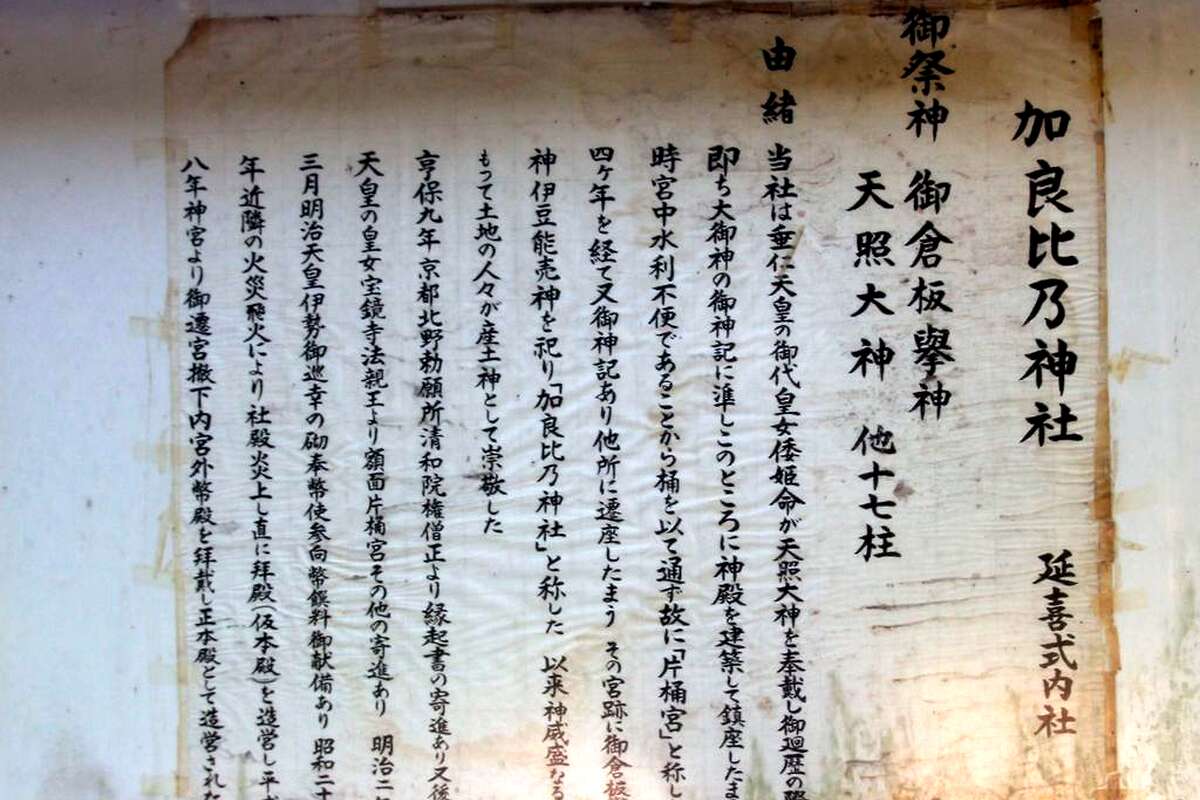 加良比乃神社 延喜式内社
御祭神 御倉板擧神
天照大神 他十七柱
由緒 当社は垂仁天皇の御代皇女倭姫命が天照大神を奉戴し御廻歴の際
即ち大御神の御神記に準しこのところに神殿を建築して鎮座したま
時宮中水利不便であることから桶を以て通ず故に「片桶宮」と称し
四ヶ年を経て又御神記あり他所に遷座したまう その宮跡に御倉板
神伊豆能売神を祀り「加良比乃神社」と称した 以来神威盛なる
もって土地の人々が産土神として崇敬した
享保九年京都北野勅願所清和院権僧正より縁起書の寄進あり又後
天皇の皇女宝鏡寺法親王より額面片桶宮その他の寄進あり 明治二年
三月明治天皇伊勢御巡幸の砌奉幣使参向幣饌料御献備あり 昭和二十
年近隣の火災飛火により社殿炎上し直に拝殿(仮本殿)を造営し平成
八年神宮より御遷宮撤下内宮外幣殿を拝戴し正本殿として造営された